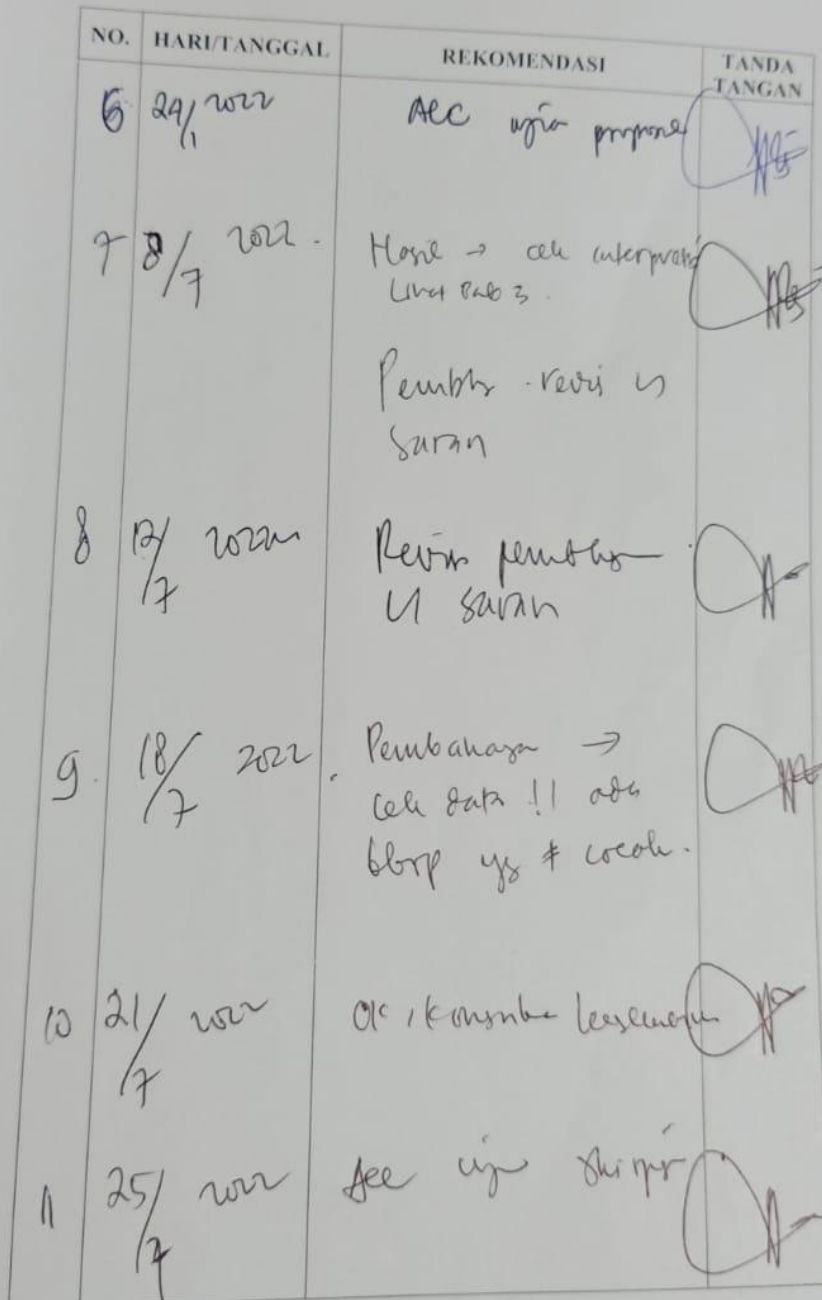 NO. HARI/TANGGAL REKOMENDASI TANDA TANGAN
6 24/1 2022 ACC ujian proposal
7 8/7 2022. Hasil → cek interpretasi
Lihat Bab 3.
revisi
saran
8 12/7 2022 Revisi
saran
9. 18/7 2022. Pembahasan →
cek data !! ada
bbrp yg ≠ cocok.
10 21/7 2022 OK,
11 25/7 2022 Acc ujian skripsi